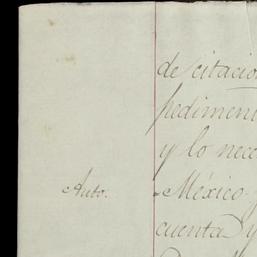 de citacio
pediment
y lo nece
Auto.
México
cuenta y